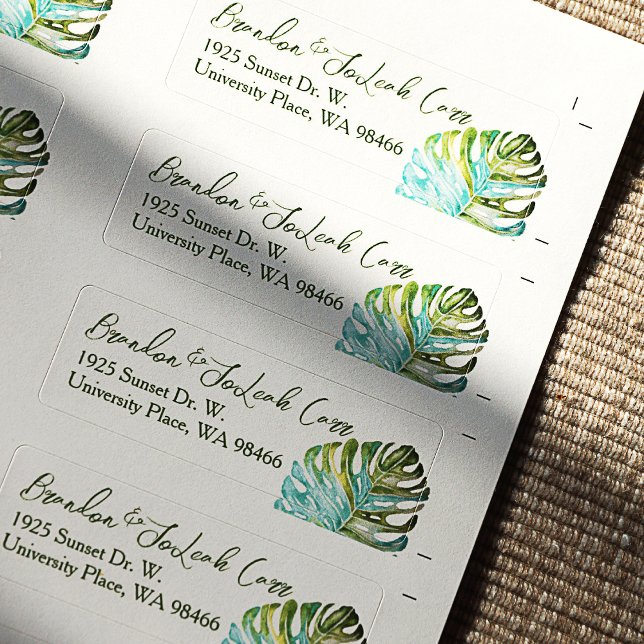 Brandon & JoLeah Carr
1925 Sunset Dr. W.
University Place, WA 98466
Brandon & JoLeah Carr
1925 Sunset Dr. W.
University Place, WA 98466
Brandon & JoLeah Carr
1925 Sunset Dr. W.
University Place, WA 98466
Brandon & JoLeah Carr
1925 Sunset Dr. W.
University Place, WA 98466